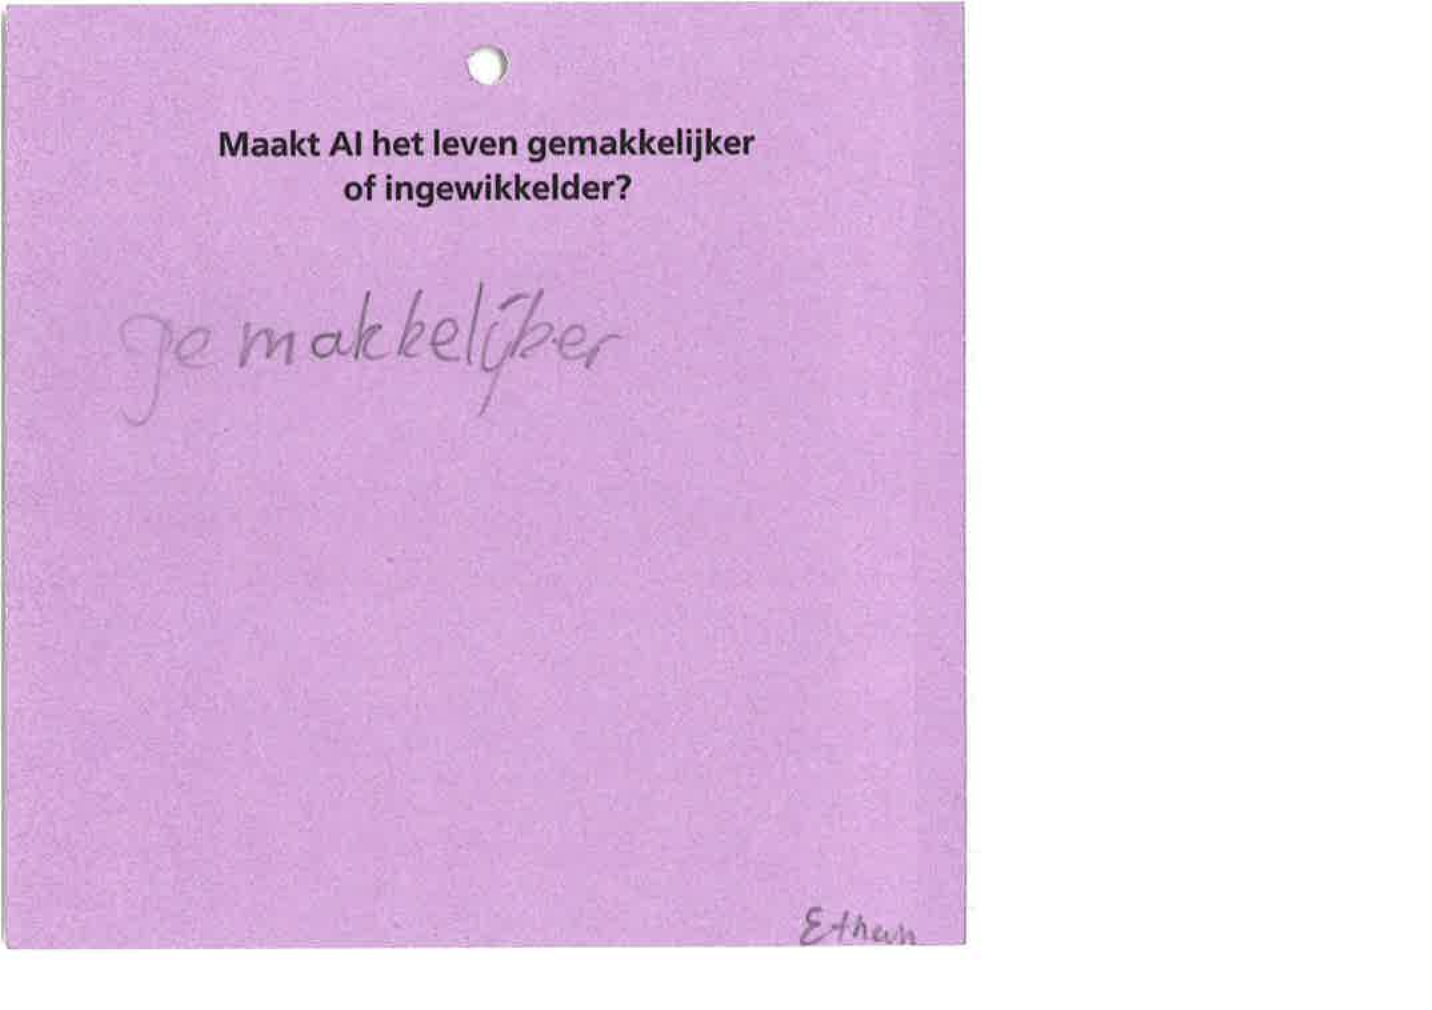 Maakt AI het leven gemakkelijker
of ingewikkelder?
gemakkelijker
Ethan